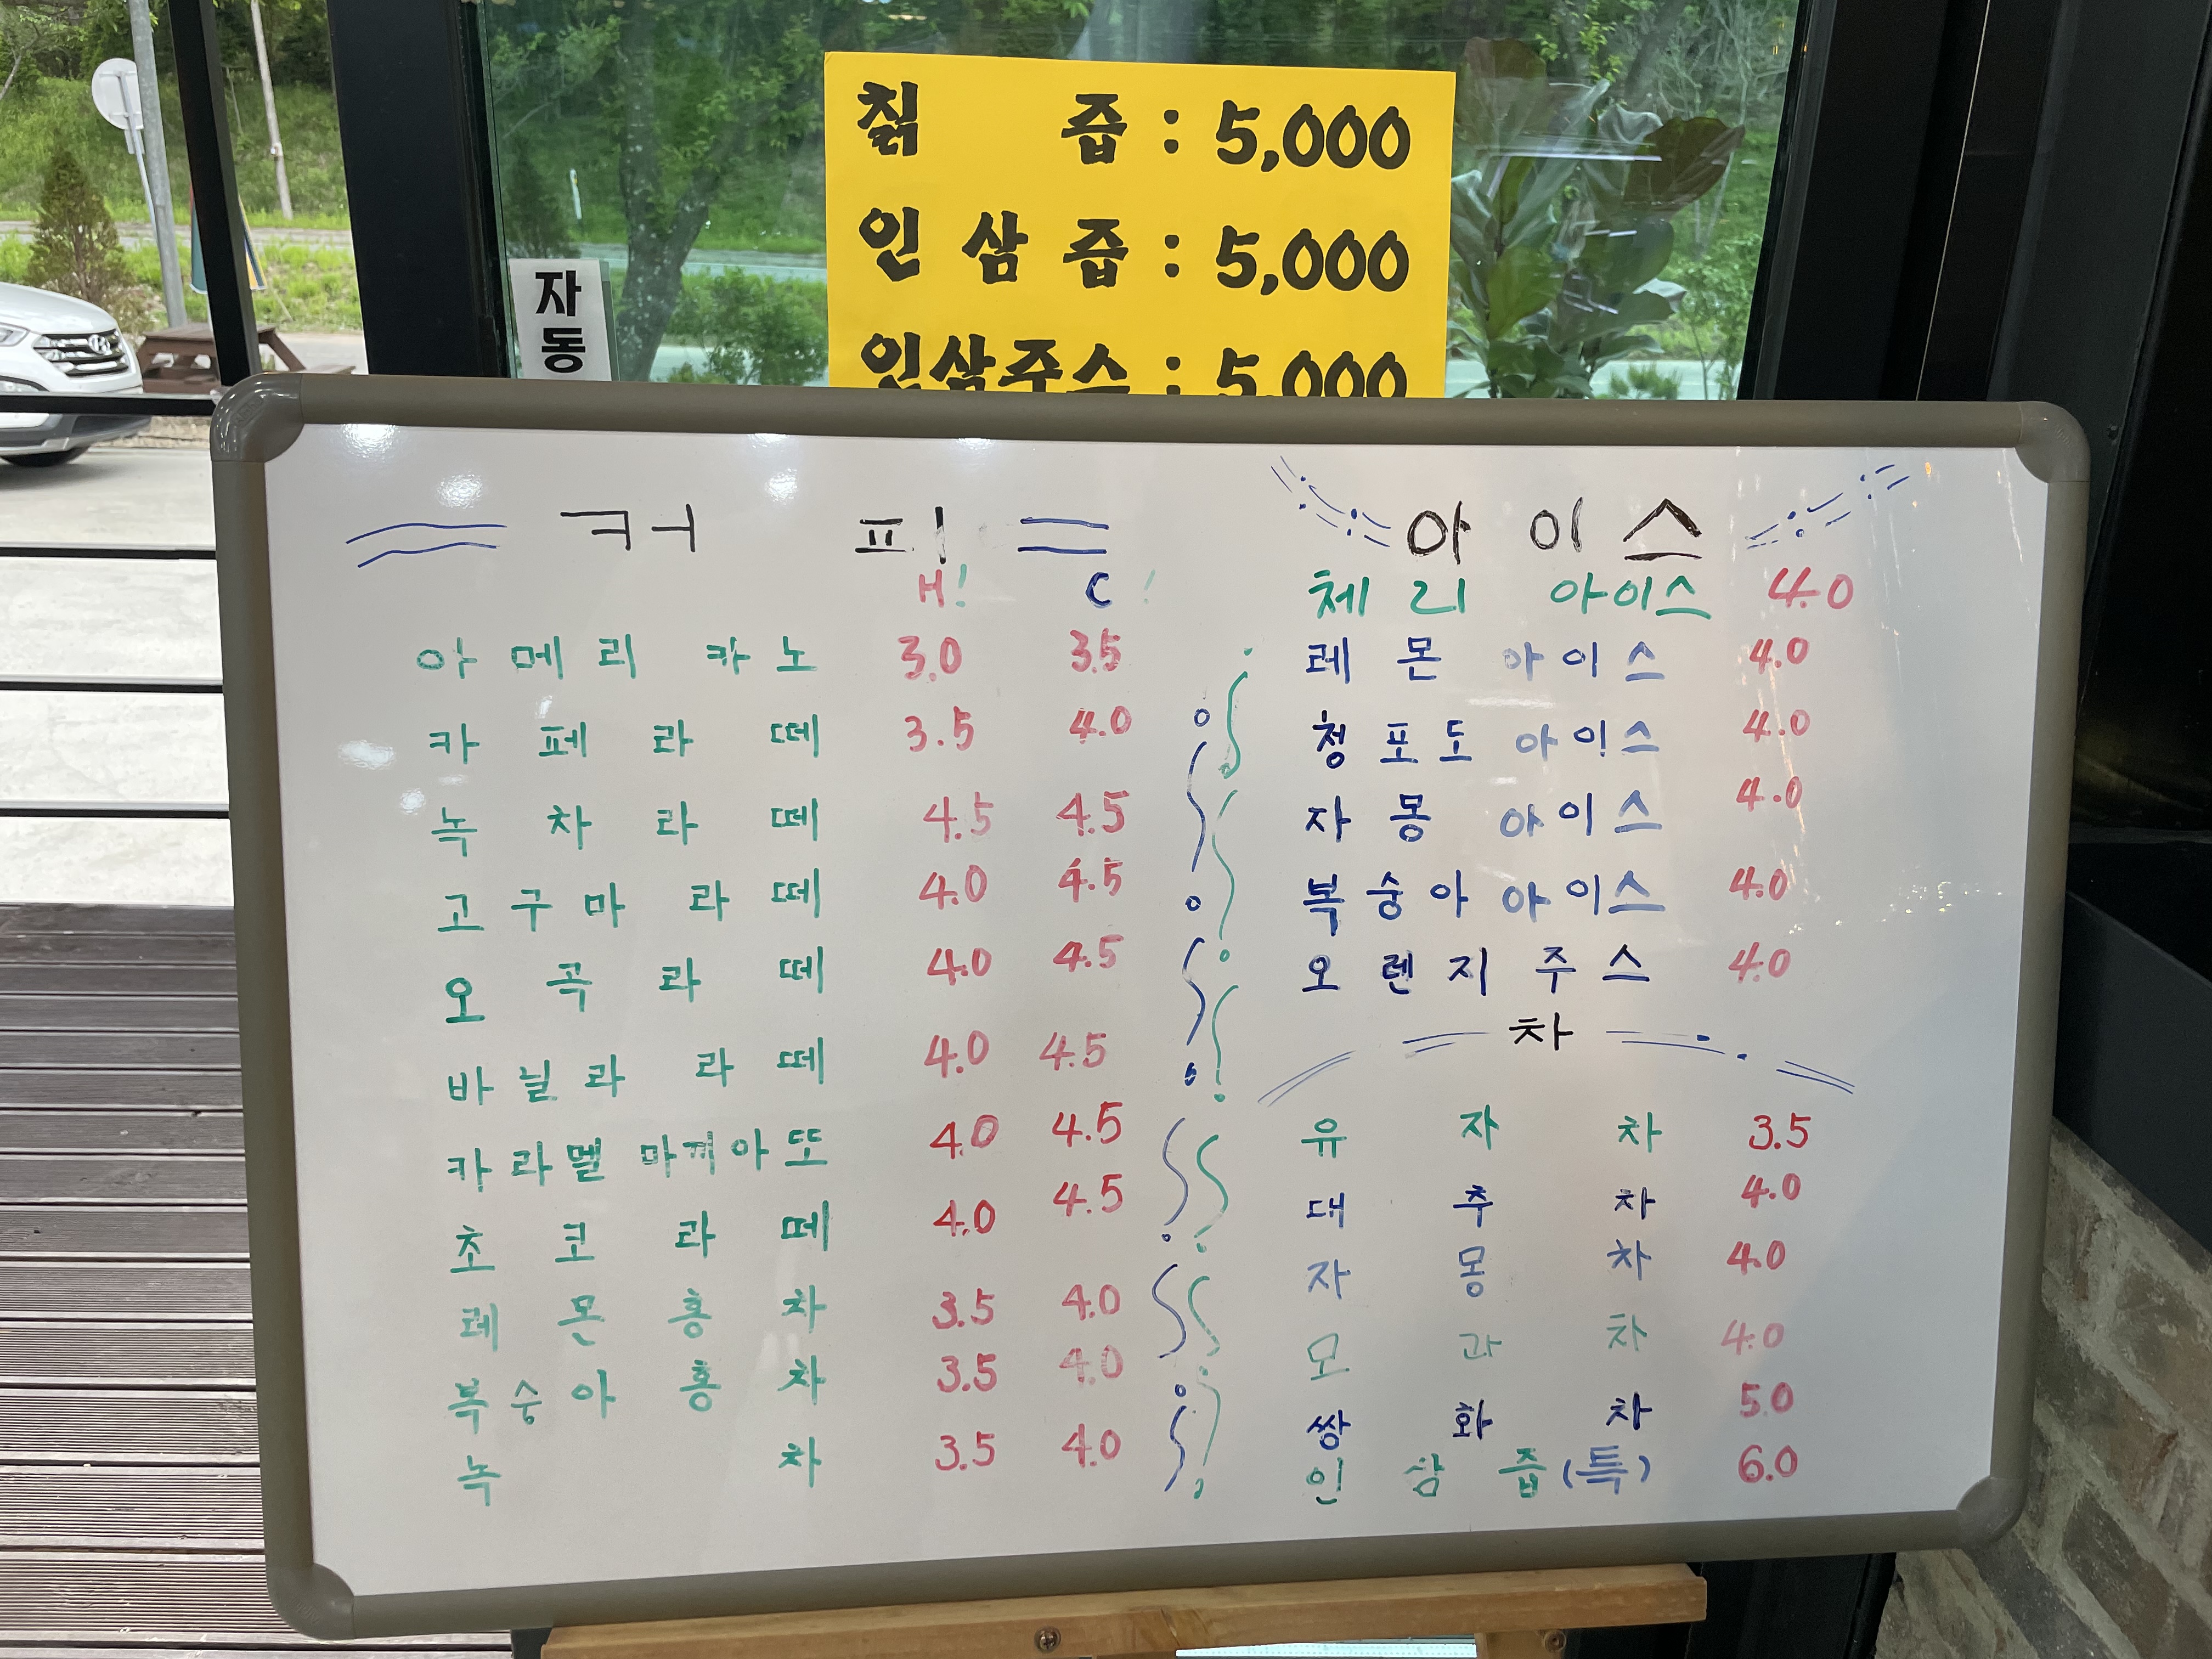 칡 즙 : 5,000
인 삼 즙 : 5,000
인삼주스 : 5,000
자
동
커 피!
H! C!
아 메 리 카 노 3.0 3.5
카 페 라 떼 3.5 4.0
녹 차 라 떼 4.5 4.5
고 구 마 라 떼 4.0 4.5
오 곡 라 떼 4.0 4.5
바 닐 라 라 떼 4.0 4.5
카 라 멜 마 끼 아 또 4.0 4.5
초 코 라 떼 4.0 4.5
레 몬 홍 차 3.5 4.0
복 숭 아 홍 차 3.5 4.0
녹 차 3.5 4.0
아 이 스
체 리 아이스 4.0
레 몬 아 이 스 4.0
청 포 도 아 이 스 4.0
자 몽 아 이 스 4.0
복 숭 아 아 이 스 4.0
오 렌 지 주 스 4.0
차
유 자 차 3.5
대 추 차 4.0
자 몽 차 4.0
모 과 차 4.0
쌍 화 차 5.0
인 삼 즙 (특) 6.0